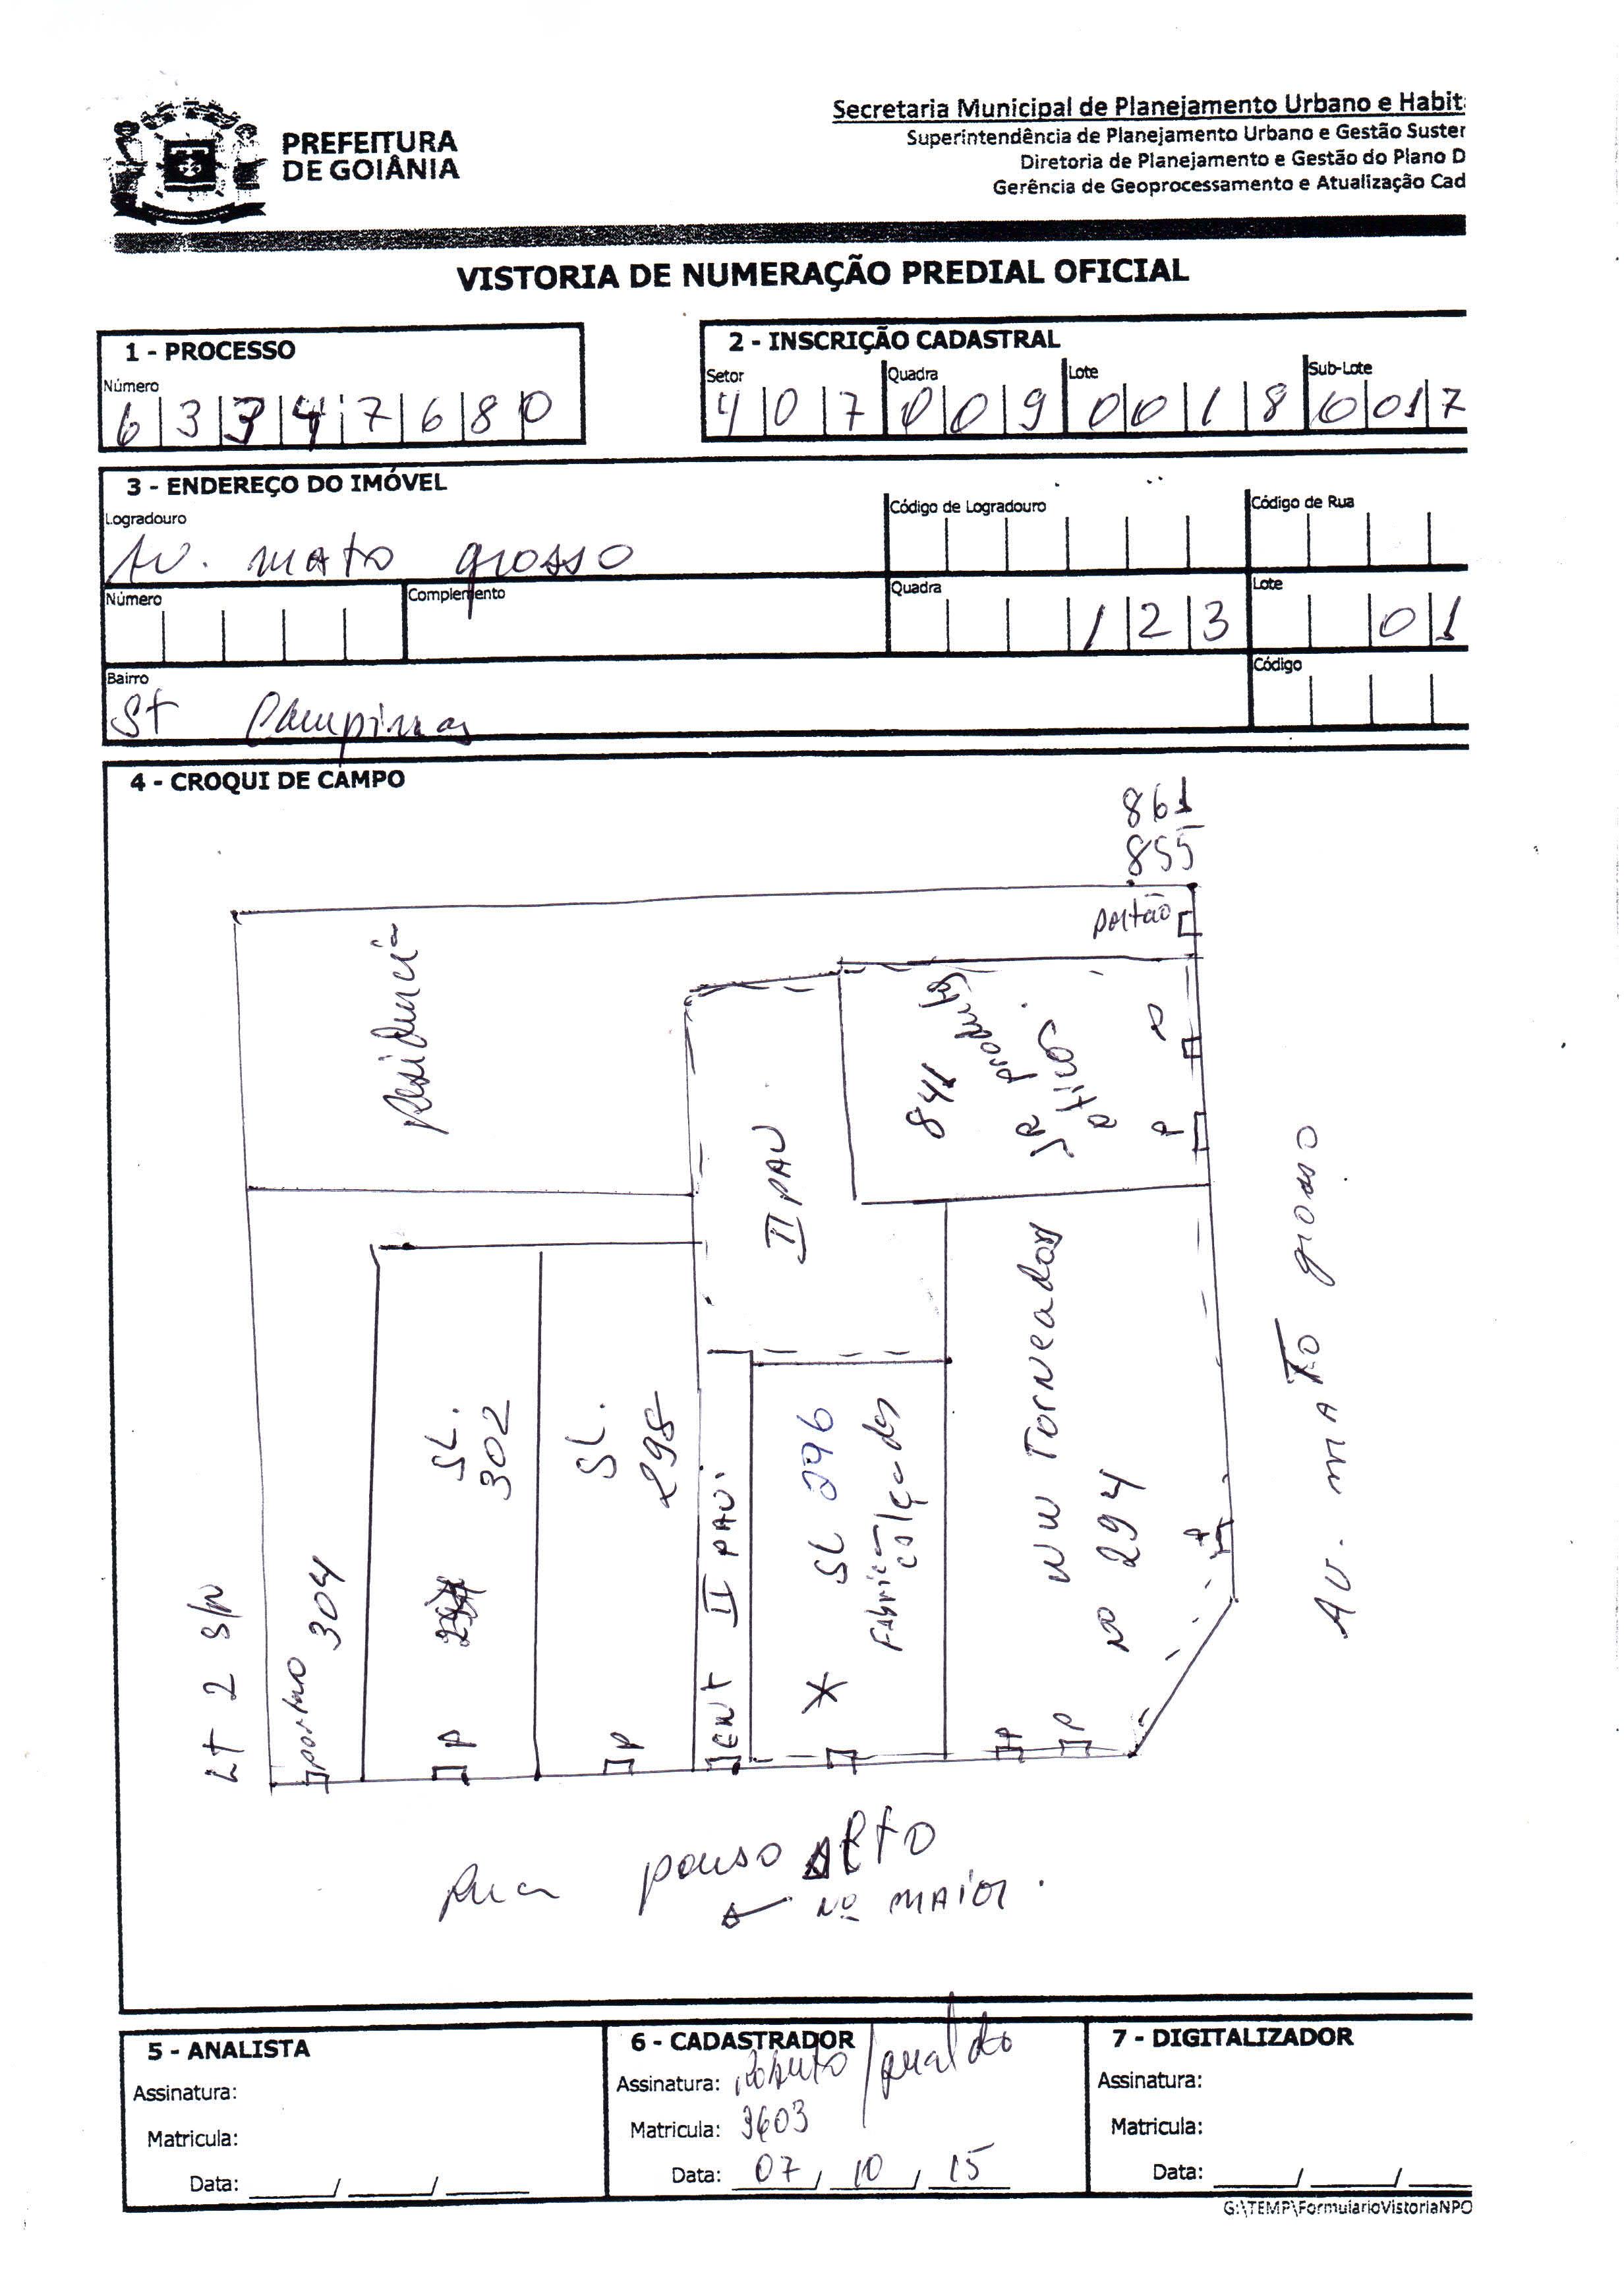 PREFEITURA
DE GOIÂNIA
Secretaria Municipal de Planejamento Urbano e Habit
Superintendência de Planejamento Urbano e Gestão Suster
Diretoria de Planejamento e Gestão do Plano D
Gerência de Geoprocessamento e Atualização Cad
VISTORIA DE NUMERAÇÃO PREDIAL OFICIAL
1 - PROCESSO
Número
6 3 3 4 7 6 8 0
2 - INSCRIÇÃO CADASTRAL
Setor Quadra Lote Sub-Lote
4 0 7 0 0 9 0 0 1 8 0 0 1 7
3 - ENDEREÇO DO IMÓVEL
Logradouro Código de Logradouro Código de Rua
Av. mato grosso
Número Complemento Quadra Lote
1 2 3 0 1
Bairro Código
St Campinas
4 - CROQUI DE CAMPO
861
855
portão
Residencia
841
JR produtos
oticos
P
P
II PAV
SL.
302
SL.
298
ENT II PAV.
SL 296
Fabrica de
calçados
*
WW Torneados
Nº 294
P
Lt 2 S/N
portão
304
P
P
P
P
Av. mATo grosso
Rua pouso ALTO
← Nº MAIOR.
5 - ANALISTA
Assinatura:
Matricula:
Data: ___/___/___
6 - CADASTRADOR
Assinatura: Roberto / Geraldo
Matricula: 3603
Data: 07 / 10 / 15
7 - DIGITALIZADOR
Assinatura:
Matricula:
Data: ___/___/___
G:\TEMP\FormularioVistoriaNPO